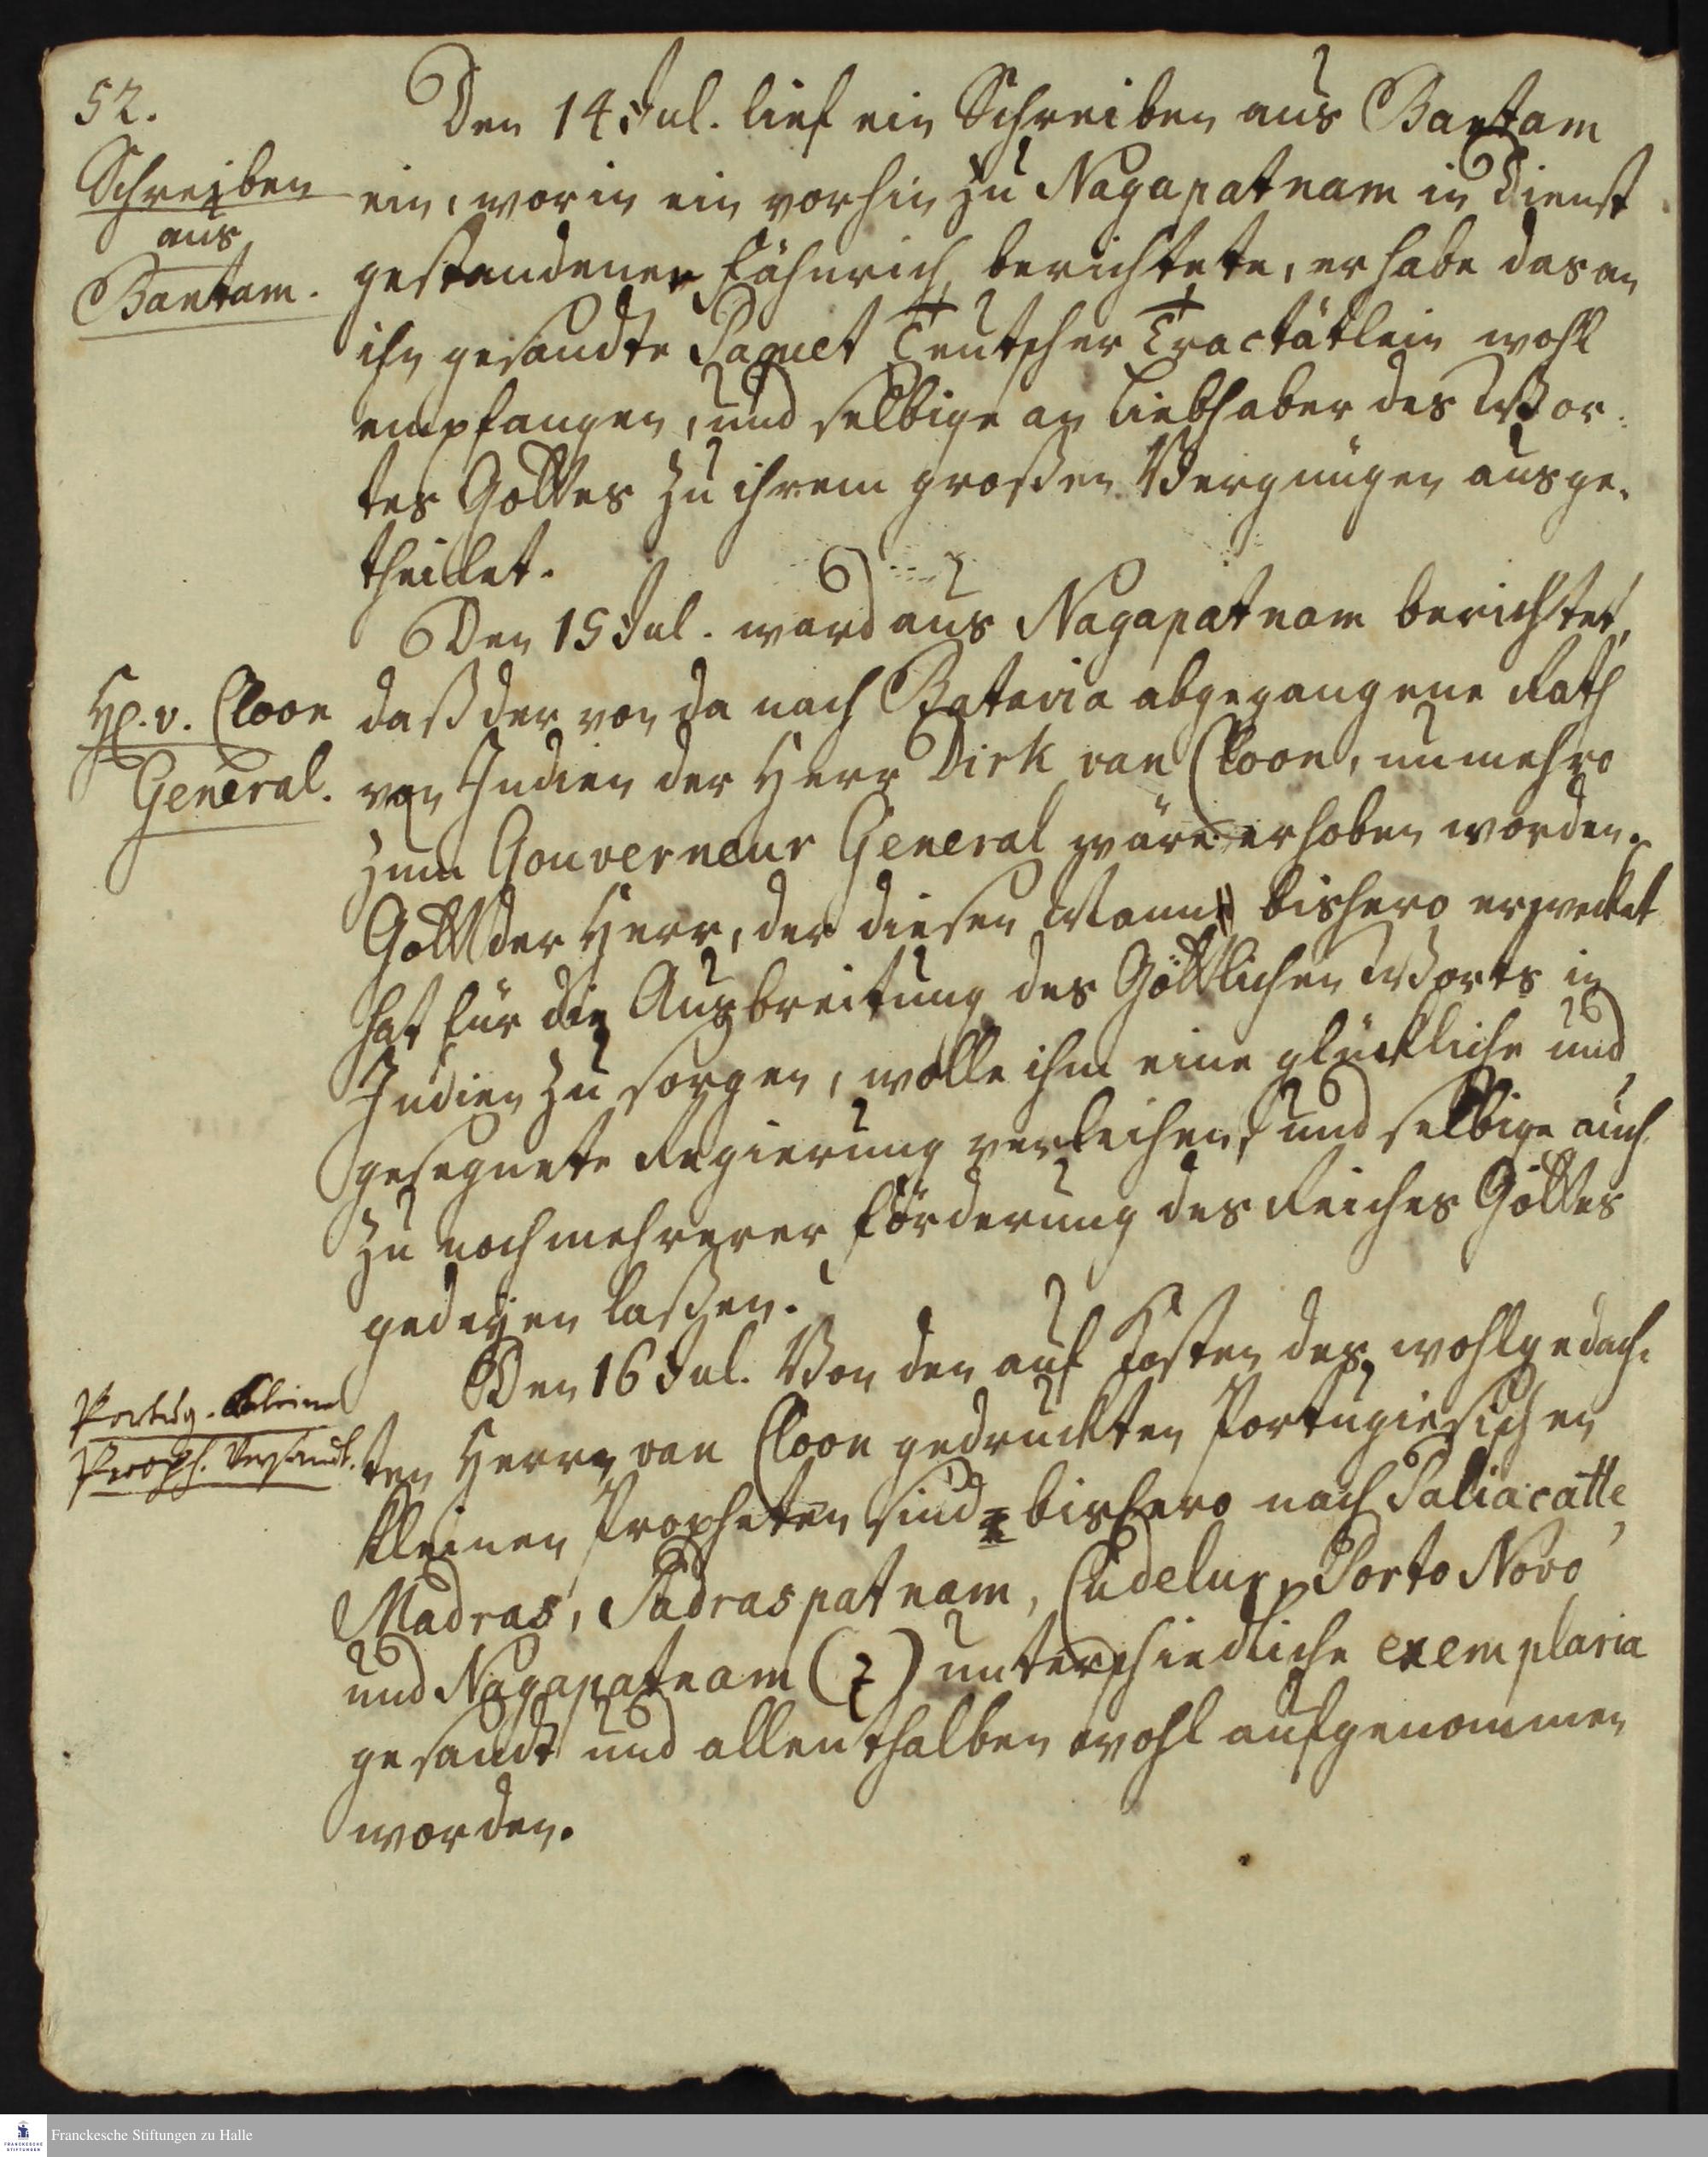 52.
Schreiben
aus
Bantam.
Den 14 Jul. lief ein Schreiben aus Bantam
ein, worin ein vorhin zu Nagapatnam in Dienst
gestandener Fähnrich berichtete, er habe das an
ihn gesandte Paquet Teutscher Tractätlein wohl
empfangen, und selbige an Liebhaber des Wor-
tes Gottes zu ihrem großen Vergnügen ausge-
theilet.
Den 15 Jul. ward aus Nagapatnam berichtet,
Hl. v. Cloon
General.
daß der von da nach Batavia abgegangene Rath
von Indien der Herr Dirk van Cloon, nunmehro
zum Gouverneur General wäre erhoben worden.
Gott der Herr, der diesen Mann bishero erwecket
hat für die Ausbreitung des Göttlichen Worts in
Indien zu sorgen, wolle ihm eine glückliche und
gesegnete Regierung verleihen, und selbige auch
zu noch mehrerer Förderung des Reiches Gottes
gedeyen laßen.
Den 16 Jul. Von den auf Kosten des wohlgedach-
Portug. kleine
Proph. Versandt.
ten Herrn van Cloon gedruckten Portugiesischen
kleinen Propheten sind bishero nach Paliacatte,
Madras, Sadraspatnam, Cudelur, Porto Novo
und Nagapatnam (z) unterschiedliche exemplaria
gesandt und allenthalben wohl aufgenommen
worden.
Franckesche Stiftungen zu Halle